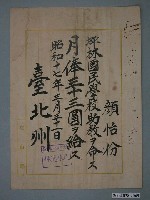 顏怡份
坪林國民學校助教ヲ命ス
月俸三十三圓ヲ給ス
昭和十七年三月三十一日
臺北州